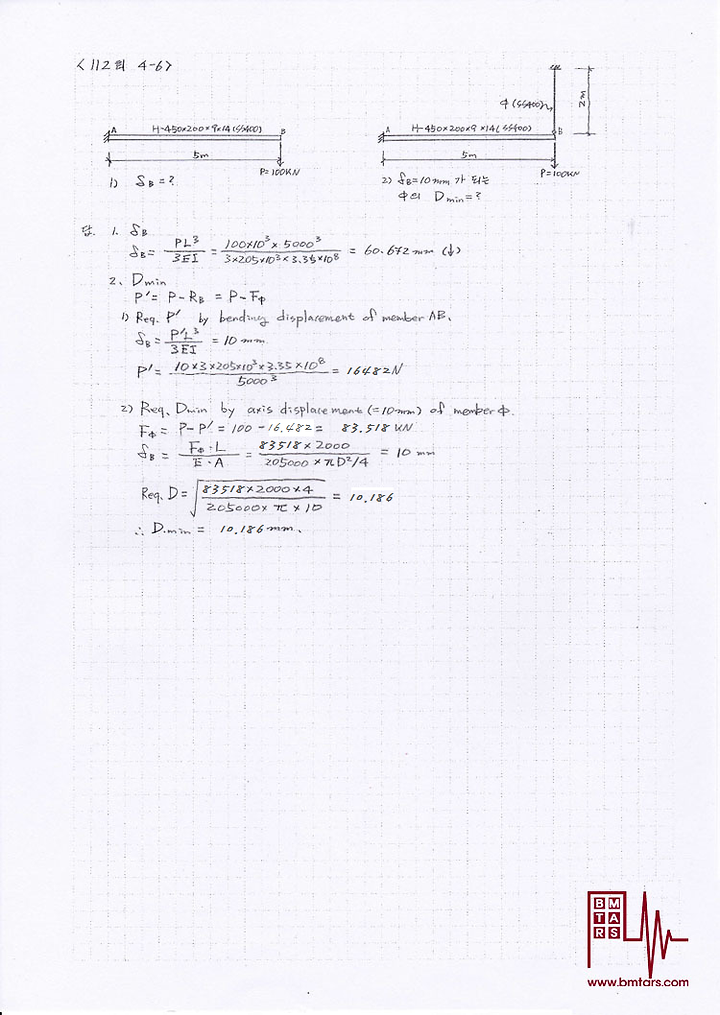 <112회 4-6>
A H-450×200×9×14(SS400) B
5m
P=100KN
1) δB = ?
φ(SS400)
2m
A H-450×200×9×14(SS400) B
5m
P=100KN
2) δB=10mm가 되는
φ의 Dmin=?
답. 1. δB
δB = PL³/3EI = 100×10³ × 5000³/3×205×10³×3.35×10⁸ = 60.672 mm (↓)
2. Dmin
P' = P-RB = P-Fφ
1) Req. P' by bending displacement of member AB.
δB = P'L³/3EI = 10 mm
P' = 10×3×205×10³×3.35×10⁸/5000³ = 16482N
2) Req. Dmin by axis displacement (=10mm) of member φ.
Fφ = P-P' = 100-16.482 = 83.518 KN
δB = Fφ·L/E·A = 83518×2000/205000×πD²/4 = 10 mm
Req. D = √83518×2000×4/205000×π×10 = 10.186
∴ Dmin = 10.186mm.
BMTARS
www.bmtars.com